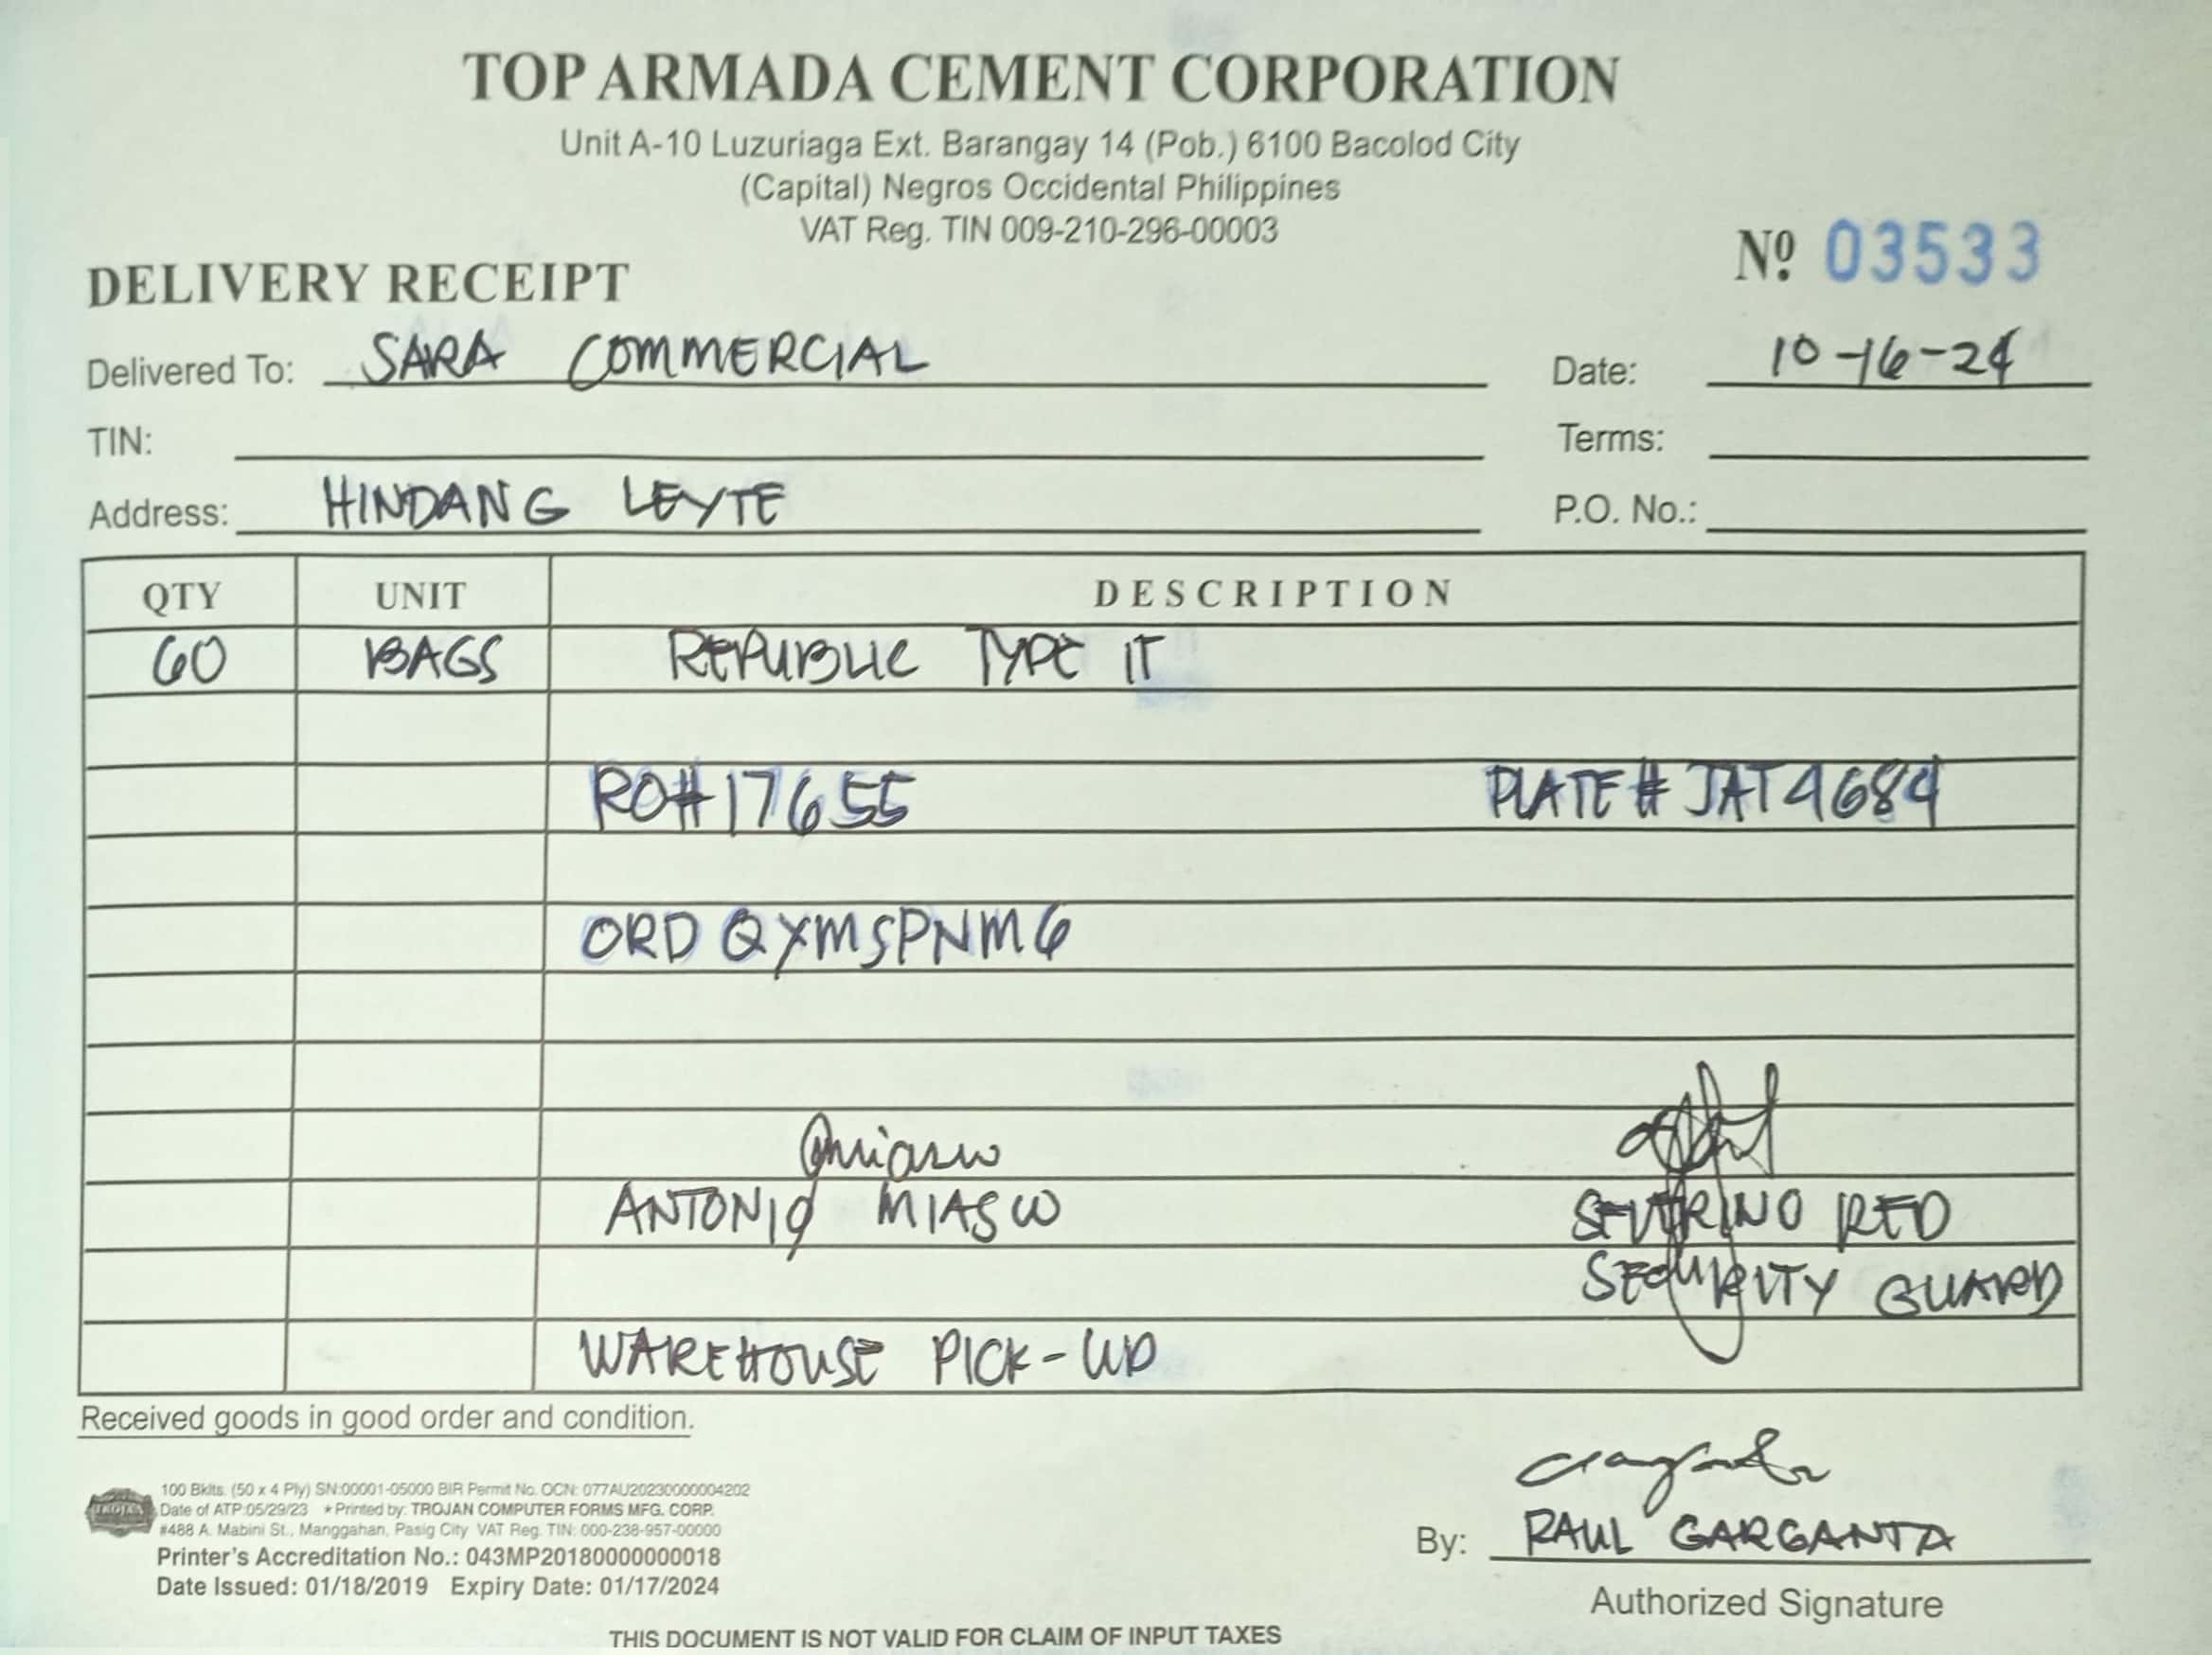 TOP ARMADA CEMENT CORPORATION
Unit A-10 Luzuriaga Ext. Barangay 14 (Pob.) 6100 Bacolod City
(Capital) Negros Occidental Philippines
VAT Reg. TIN 009-210-296-00003
Nº 03533
DELIVERY RECEIPT
Delivered To: SARA COMMERCIAL Date: 10-16-24
TIN: Terms:
Address: HINDANG LEYTE P.O. No.:
QTY UNIT DESCRIPTION
60 BAGS REPUBLIC TYPE IT
RO#17655 PLATE # JAT4684
ORD QXMSPNM6
ANTONIO MIASCO SEVERINO RED
SECURITY GUARD
WAREHOUSE PICK-UP
Received goods in good order and condition.
TROJAN
100 Bklts. (50 x 4 Ply) SN:00001-05000 BIR Permit No. OCN: 077AU20230000004202
Date of ATP:05/29/23 ★Printed by: TROJAN COMPUTER FORMS MFG. CORP.
#488 A. Mabini St., Manggahan, Pasig City VAT Reg. TIN: 000-238-957-00000
Printer's Accreditation No.: 043MP20180000000018
Date Issued: 01/18/2019 Expiry Date: 01/17/2024
By: RAUL GARGANTA
Authorized Signature
THIS DOCUMENT IS NOT VALID FOR CLAIM OF INPUT TAXES